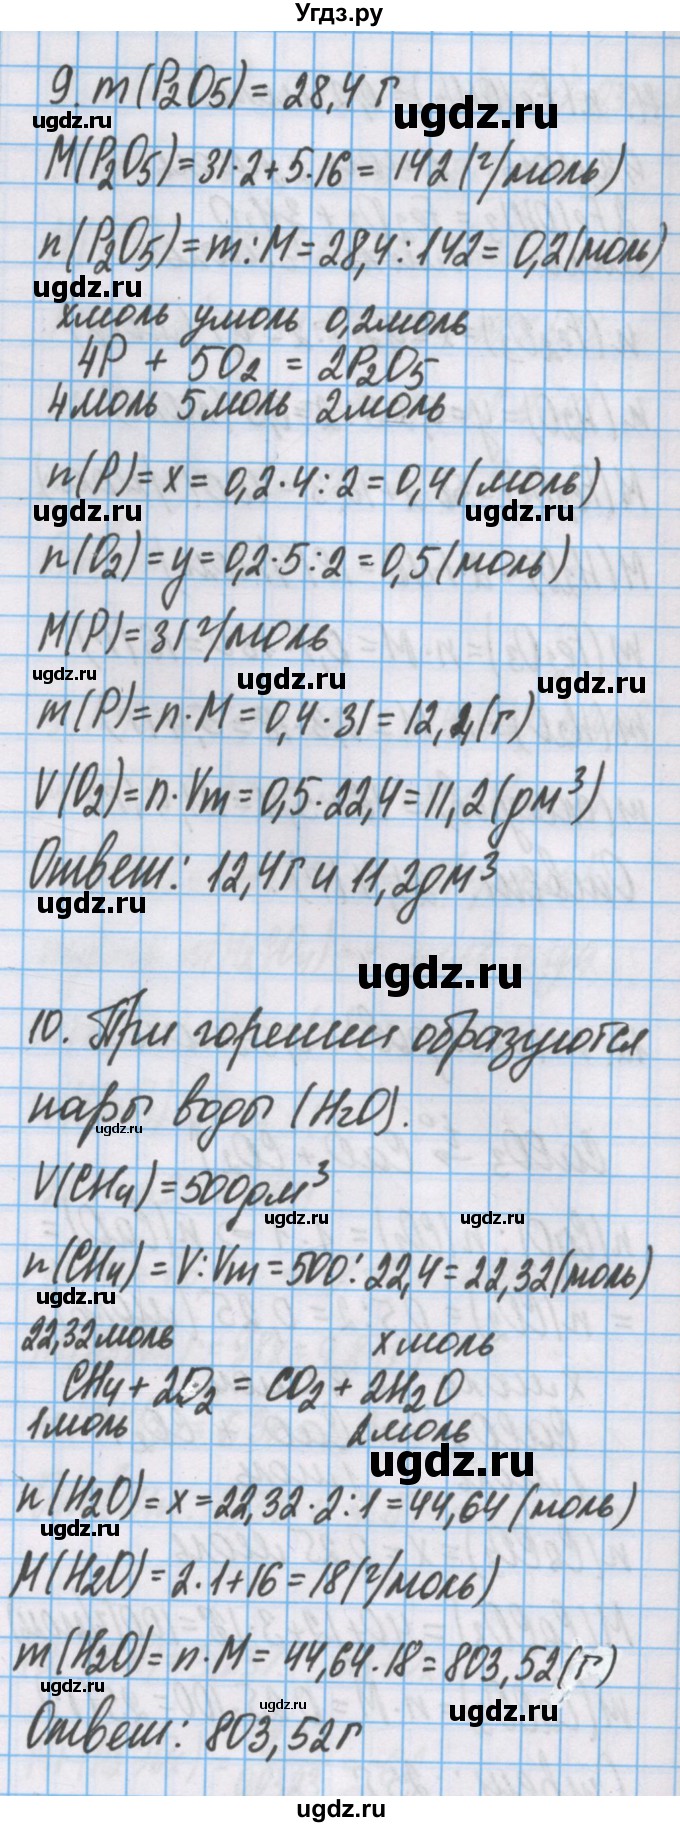 Угдз.ру
9. m(P2O5) = 28,4 г
ugdz.ru
ugdz.ru
M(P2O5) = 31·2+5·16 = 142 (г/моль)
n(P2O5) = m:M = 28,4:142 = 0,2 (моль)
ugdz.ru
xмоль yмоль 0,2моль
4P + 5O2 = 2P2O5
4моль 5моль 2моль
n(P) = x = 0,2·4:2 = 0,4 (моль)
ugdz.ru ugdz.ru
n(O2) = y = 0,2·5:2 = 0,5 (моль)
M(P) = 31 г/моль
ugdz.ru ugdz.ru ugdz.ru
m(P) = n·M = 0,4·31 = 12,4 (г)
V(O2) = n·Vm = 0,5·22,4 = 11,2 (дм³)
Ответ: 12,4г и 11,2дм³
ugdz.ru
ugdz.ru
10. При горении образуются
пары воды (H2O).
ugdz.ru
V(CH4) = 500дм³
ugdz.ru ugdz.ru
n(CH4) = V:Vm = 500:22,4 = 22,32 (моль)
ugdz.ru
22,32моль xмоль
CH4 + 2O2 = CO2 + 2H2O
1моль 2моль
ugdz.ru
n(H2O) = x = 22,32·2:1 = 44,64 (моль)
ugdz.ru
M(H2O) = 2·1+16 = 18 (г/моль)
m(H2O) = n·M = 44,64·18 = 803,52 (г)
ugdz.ru ugdz.ru ugdz.ru
Ответ: 803,52г
ugdz.ru